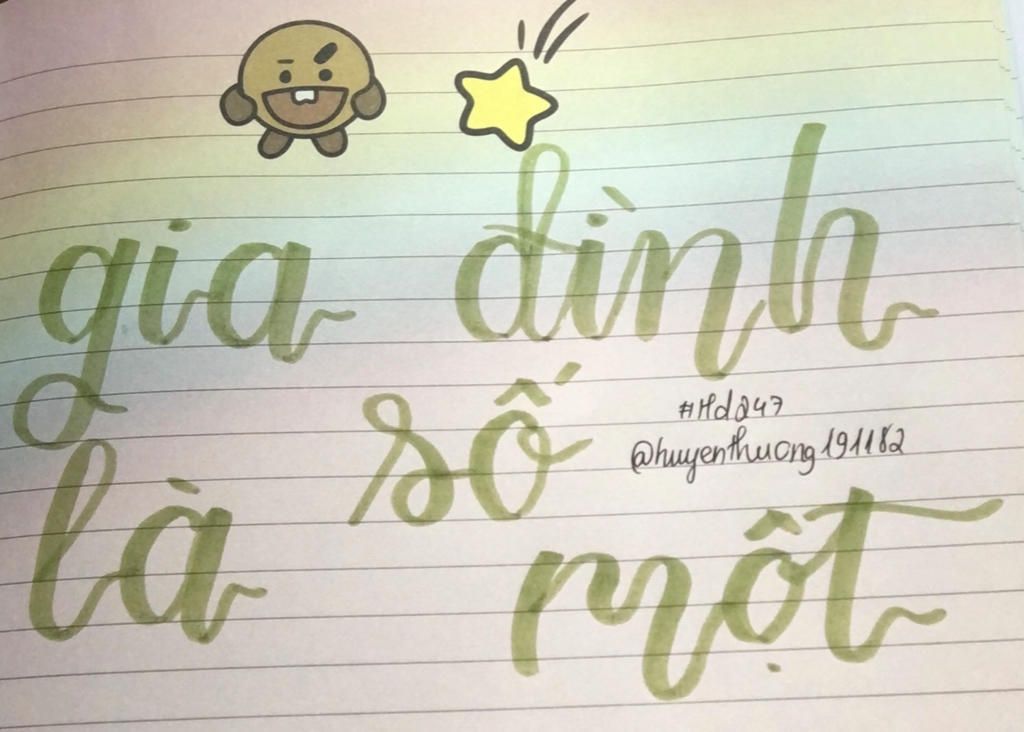 gia đình
là số
#Hd247
@huyenthuong191182
một